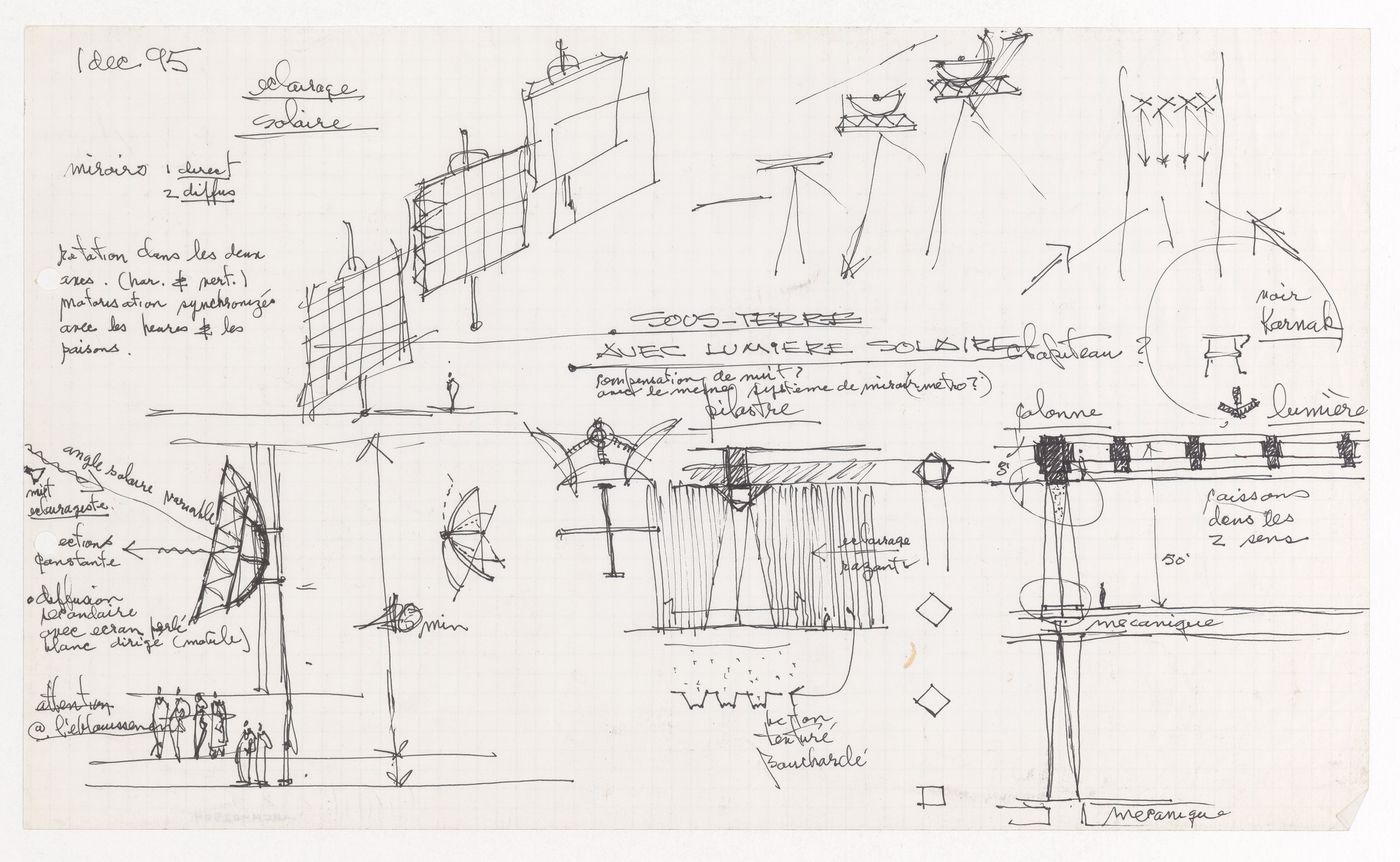 1 dec. 95
eclairage
solaire
miroirs 1 direct
2 diffus
rotation dans les deux
axes. (hor. & vert.)
motorisation synchronizés
avec les heures & les
saisons.
SOUS-TERRE
AVEC LUMIERE SOLAIRE
compensation de nuit?
avec le meme système de miroir (metro?)
chapiteau ?
noir
Karnak
lumière
pilastre
colonne
angle solaire variable
nuit
eclairagiste.
constante
• diffusion
secondaire
avec ecran perlé
blanc dirigé (mobile)
attention
@ l'eblouissement
min
eclairage
rasant
beton
texturé
bouchardé
8'
caissons
dans les
2 sens
50'
mecanique
mecanique